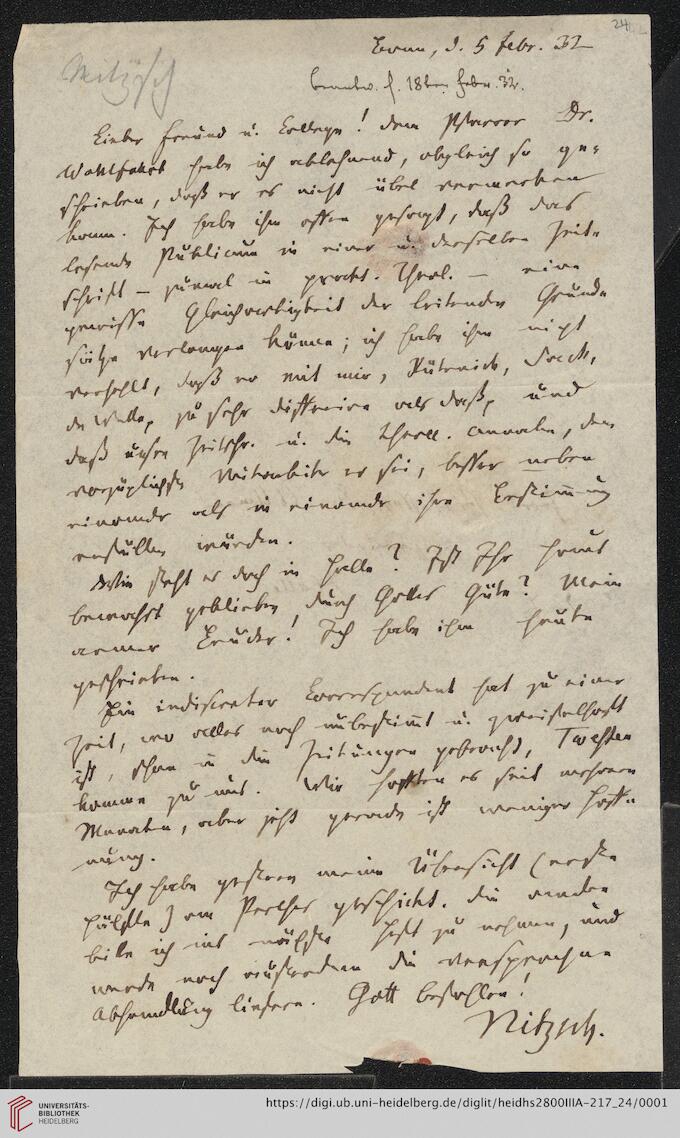 24
Nitzsch
Bonn, d. 5 Febr. 32
beantw. d. 18ten Febr. 32.
Lieber Freund u. College! Dem Pfarrer Dr.
Wohlfahrt habe ich ablehnend, obgleich so ge-
schrieben, daß er es nicht übel vermerken
kann. Ich habe ihm offen gesagt, daß das
lesende Publicum in einer u. derselben Zeit-
schrift – zumal in pract. Theol. – eine
gewisse Gleichartigkeit der leitenden Grund-
sätze verlangen könne; ich habe ihm nicht
verhehlt, daß er mit mir, Lücke,
de Wette, zu sehr differire als daß,
daß unsre Zeitschr. u. die theol. Annalen, deren
vorzüglichster Mitarbeiter er sei, besser neben
einander als in einander ihre Bestimmung
erfüllen würden.
Wie steht es doch in Halle? Ist Ihr Haus
bewahrt geblieben durch Gottes Güte? Mein
armer Bruder! Ich habe ihm heute
geschrieben.
Ein indiscreter Correspondent hat zu einer
Zeit, wo alles noch unbestimmt u. zweifelhaft
ist, schon in die Zeitungen gebracht, Twesten
komme zu uns. Wir hofften es seit mehrern
Monaten, aber jetzt gerade ist weniger Hoff-
nung.
Ich habe gestern meine Übersicht (erste
Hälfte) an Perthes geschickt. Die andre
bitte ich ins nächste Heft zu nehmen, und
werde noch außerdem die versprochne
Abhandlung liefern. Gott befohlen!
Nitzsch.
UNIVERSITÄTS-
BIBLIOTHEK
HEIDELBERG
https://digi.ub.uni-heidelberg.de/diglit/heidhs2800IIIA-217_24/0001